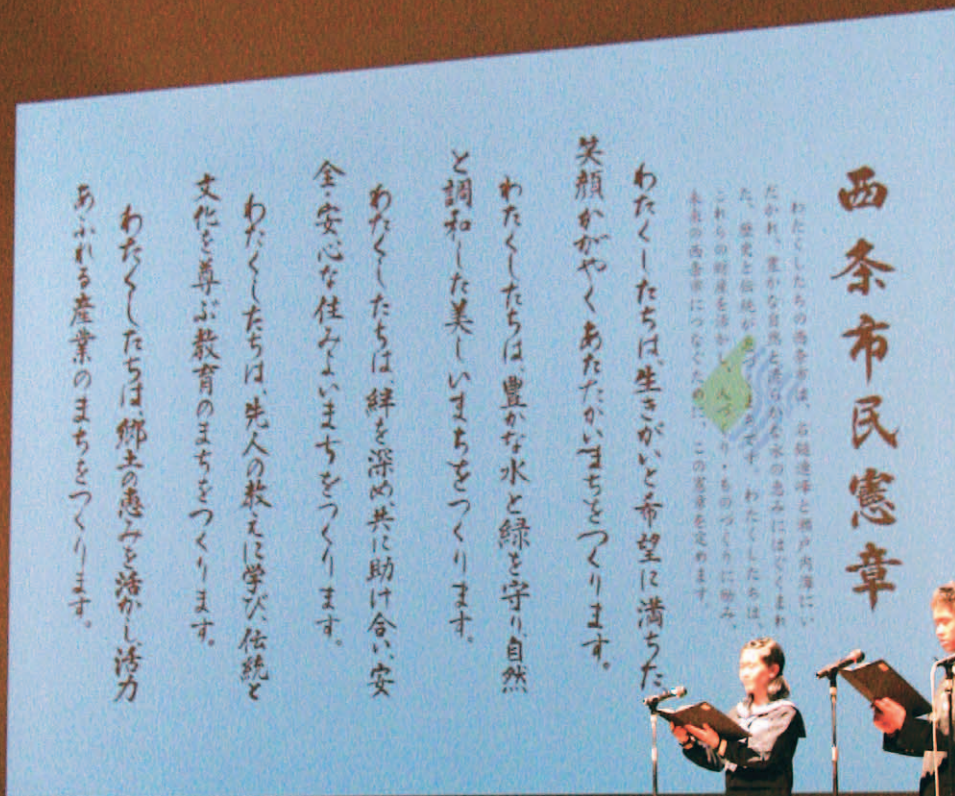 西条市民憲章
わたくしたちの西条市は、石鎚連峰と瀬戸内海にい
だかれ、豊かな自然と清らかな水の恵みにはぐくまれ
た、歴史と伝統が まちです。わたくしたちは、
これらの財産を活かし、人づくり・ものづくりに励み、
未来の西条市につなぐために、この憲章を定めます。
わたくしたちは、生きがいと希望に満ちた、
笑顔かがやくあたたかいまちをつくります。
わたくしたちは、豊かな水と緑を守り、自然
と調和した美しいまちをつくります。
わたくしたちは、絆を深め、共に助け合い、安
全・安心な住みよいまちをつくります。
わたくしたちは、先人の教えに学び、伝統と
文化を尊ぶ教育のまちをつくります。
わたくしたちは、郷土の恵みを活かし、活力
あふれる産業のまちをつくります。